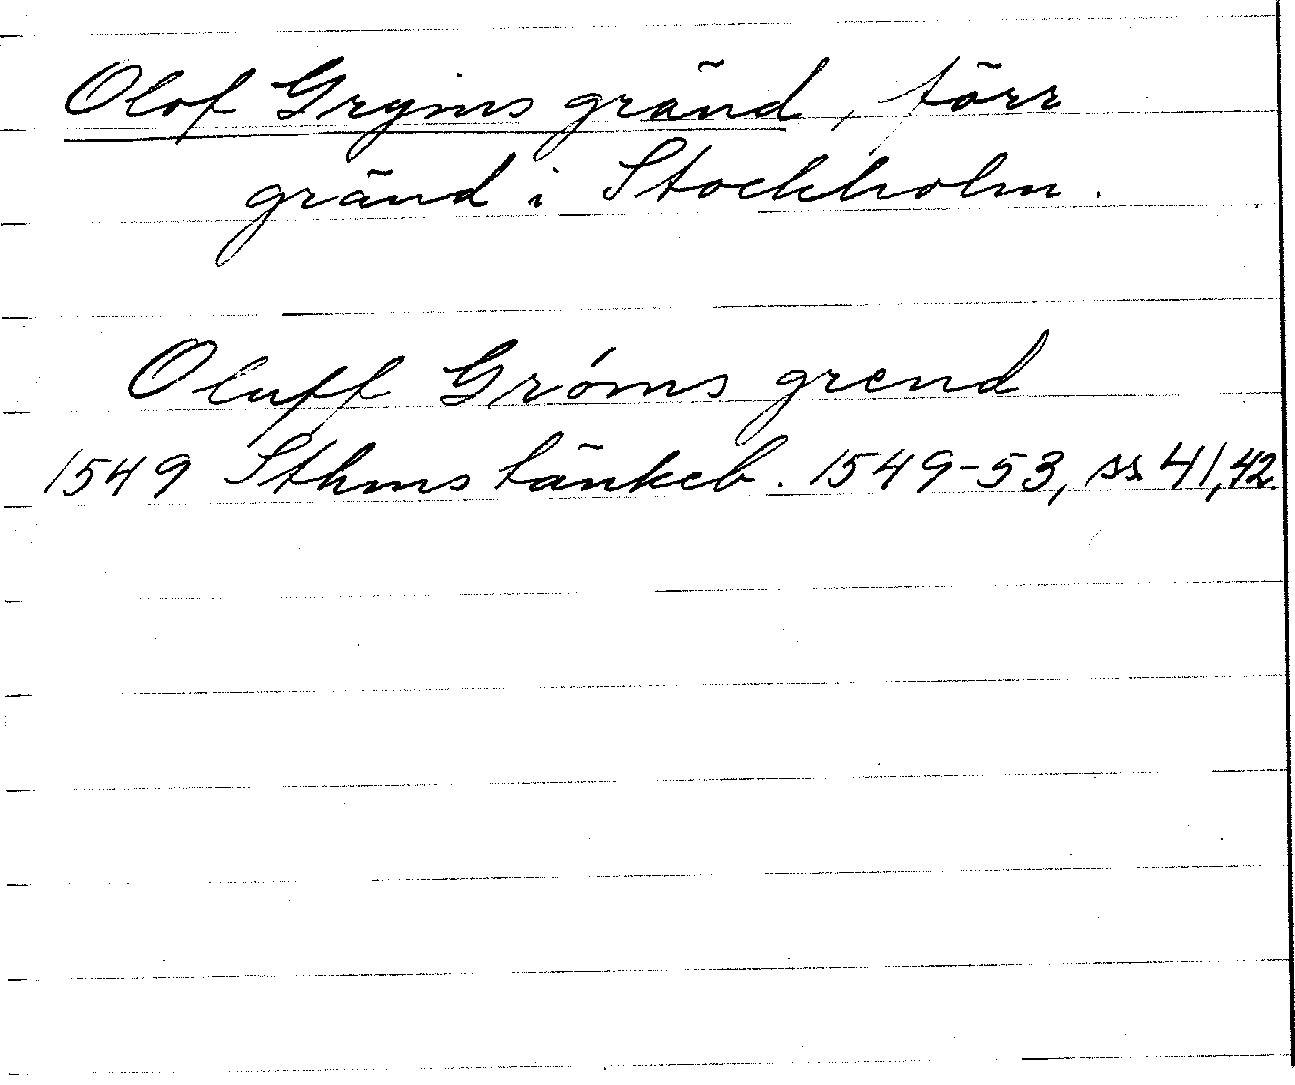 Olof Gryms gränd, förr
gränd i Stockholm.
Oluff Gróms grend
1549 Sthms tänkeb. 1549-53, ss 41,42.